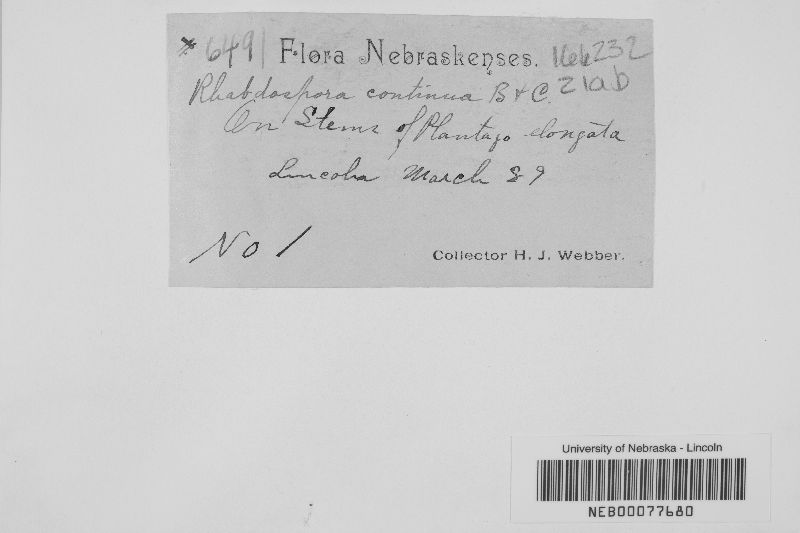 * 6491 Flora Nebraskenses. 166232
Rhabdospora continua B & C. 21ab
On Stems of Plantago elongata
Lincoln March 89
No 1
Collector H. J. Webber.
University of Nebraska - Lincoln
NEB00077680